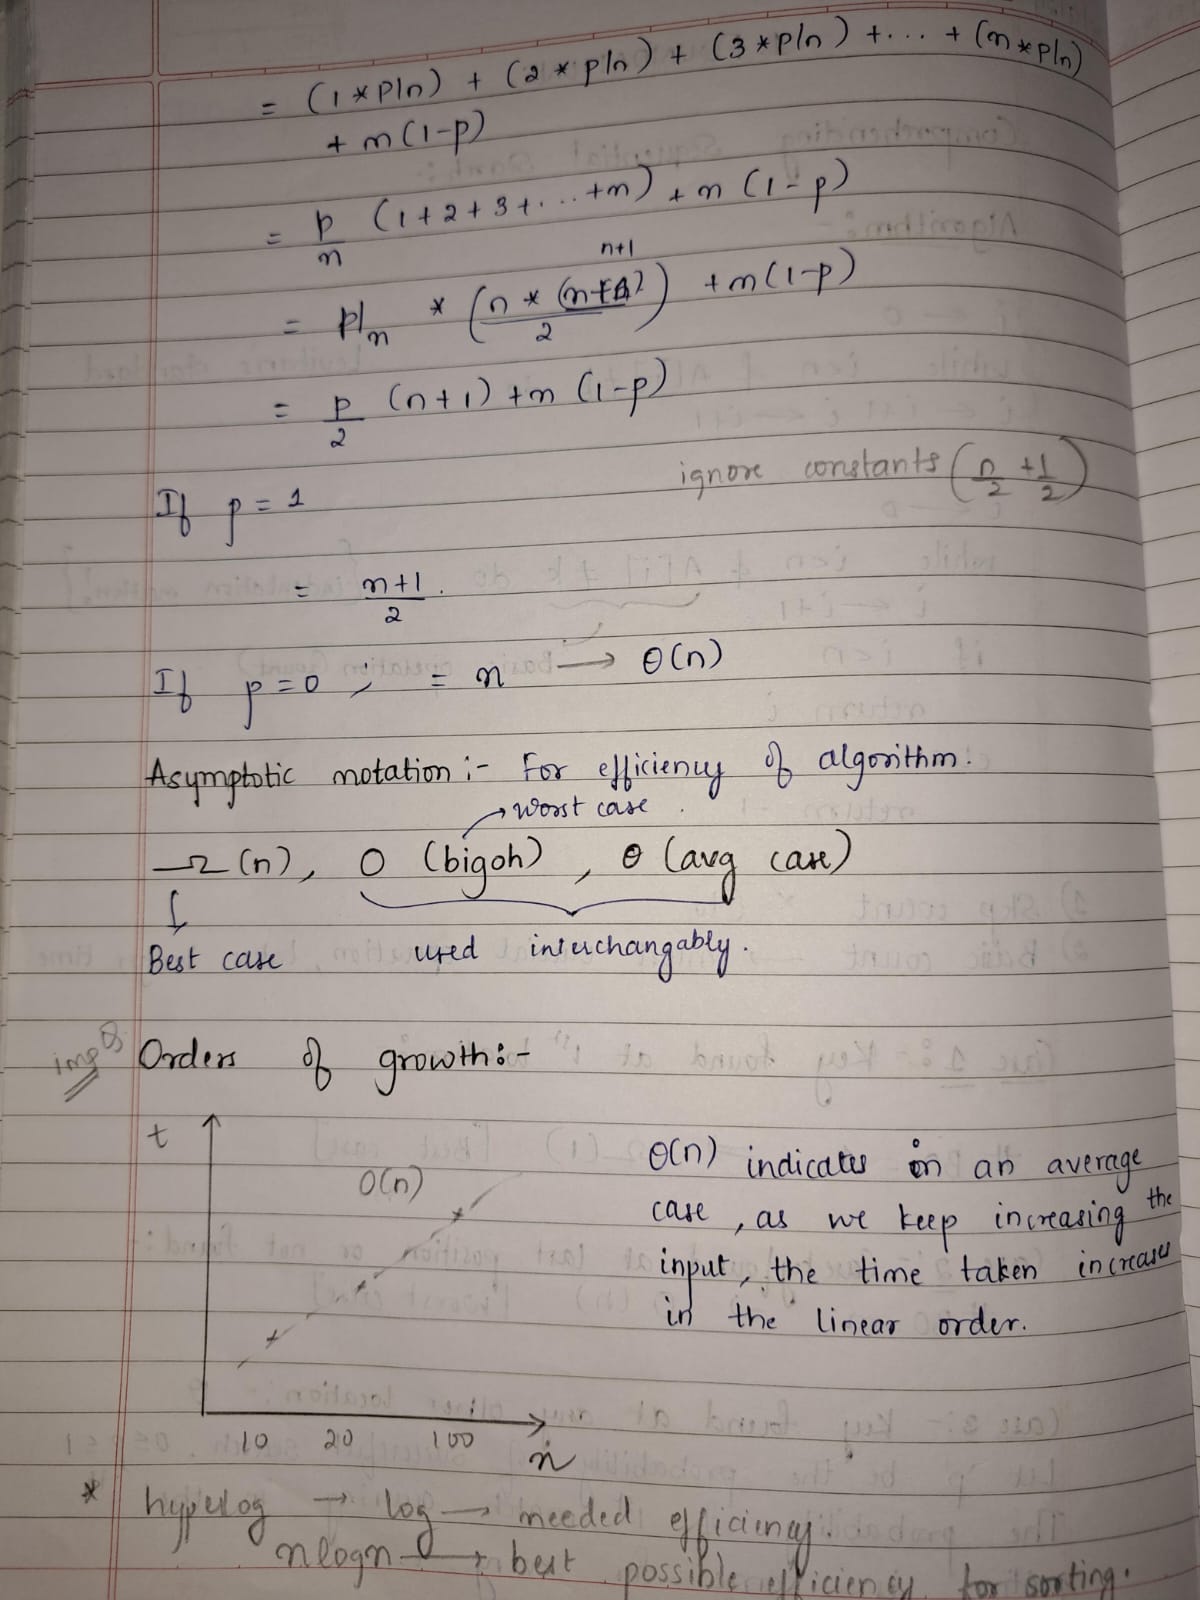 = (1 * p/n) + (2 * p/n) + (3 * p/n) + ... + (n * p/n)
+ n (1-p)
= p/n (1+2+3+...+n) + n (1-p)
n+1
= p/n * (n * /2) + n (1-p)
= p/2 (n+1) + n (1-p)
ignore constants (n/2 + 1/2)
If p = 1
= n+1/2.
If p=0 ; = n → θ(n)
Asymptotic notation :- For efficiency of algorithm.
→ worst case
Ω (n), O (bigoh), θ (avg case)
↓
Best case used interchangably.
imp Q. Orders of growth :-
t
O(n)
θ(n) indicates in an average
case, as we keep increasing the
input, the time taken increases
in the linear order.
10 20 100
n
* hyperlog → log → needed efficiency.
nlogn → best possible efficiency for sorting.